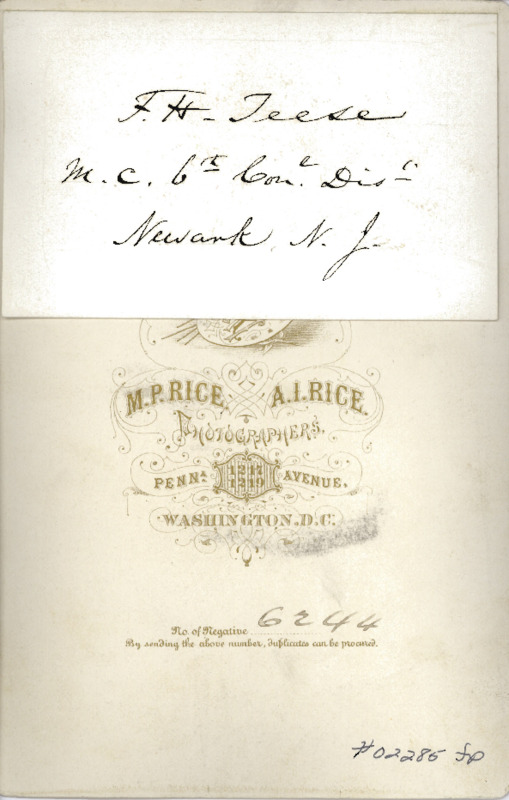 F. H. Teese
M. C. 6th Con.l Dist
Newark, N. J.
M.P. RICE. A.I. RICE.
PHOTOGRAPHERS.
PENNA 1217 1219 AVENUE.
WASHINGTON.D.C.
No. of Negative 6244
By sending the above number, duplicates can be procured.
#02285